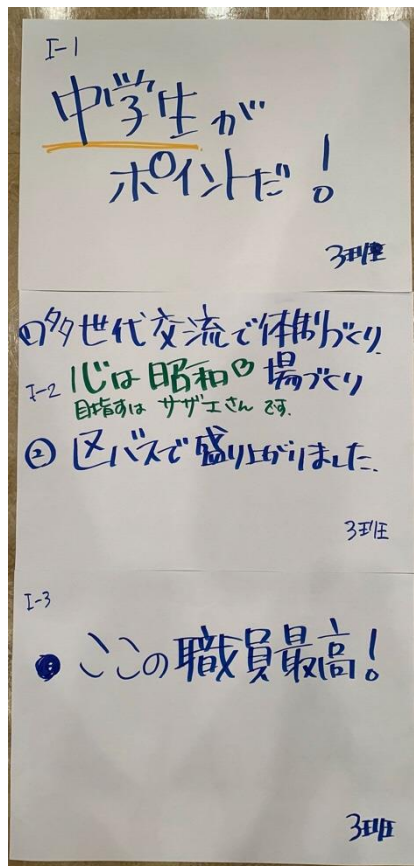 I-1
中学生が
ポイントだ!
3班
①多世代交流で体制づくり
I-2 心は昭和♡場づくり
目指すは サザエさん です.
② 区バスで盛り上がりました.
3班
I-3
● ここの職員最高!
3班